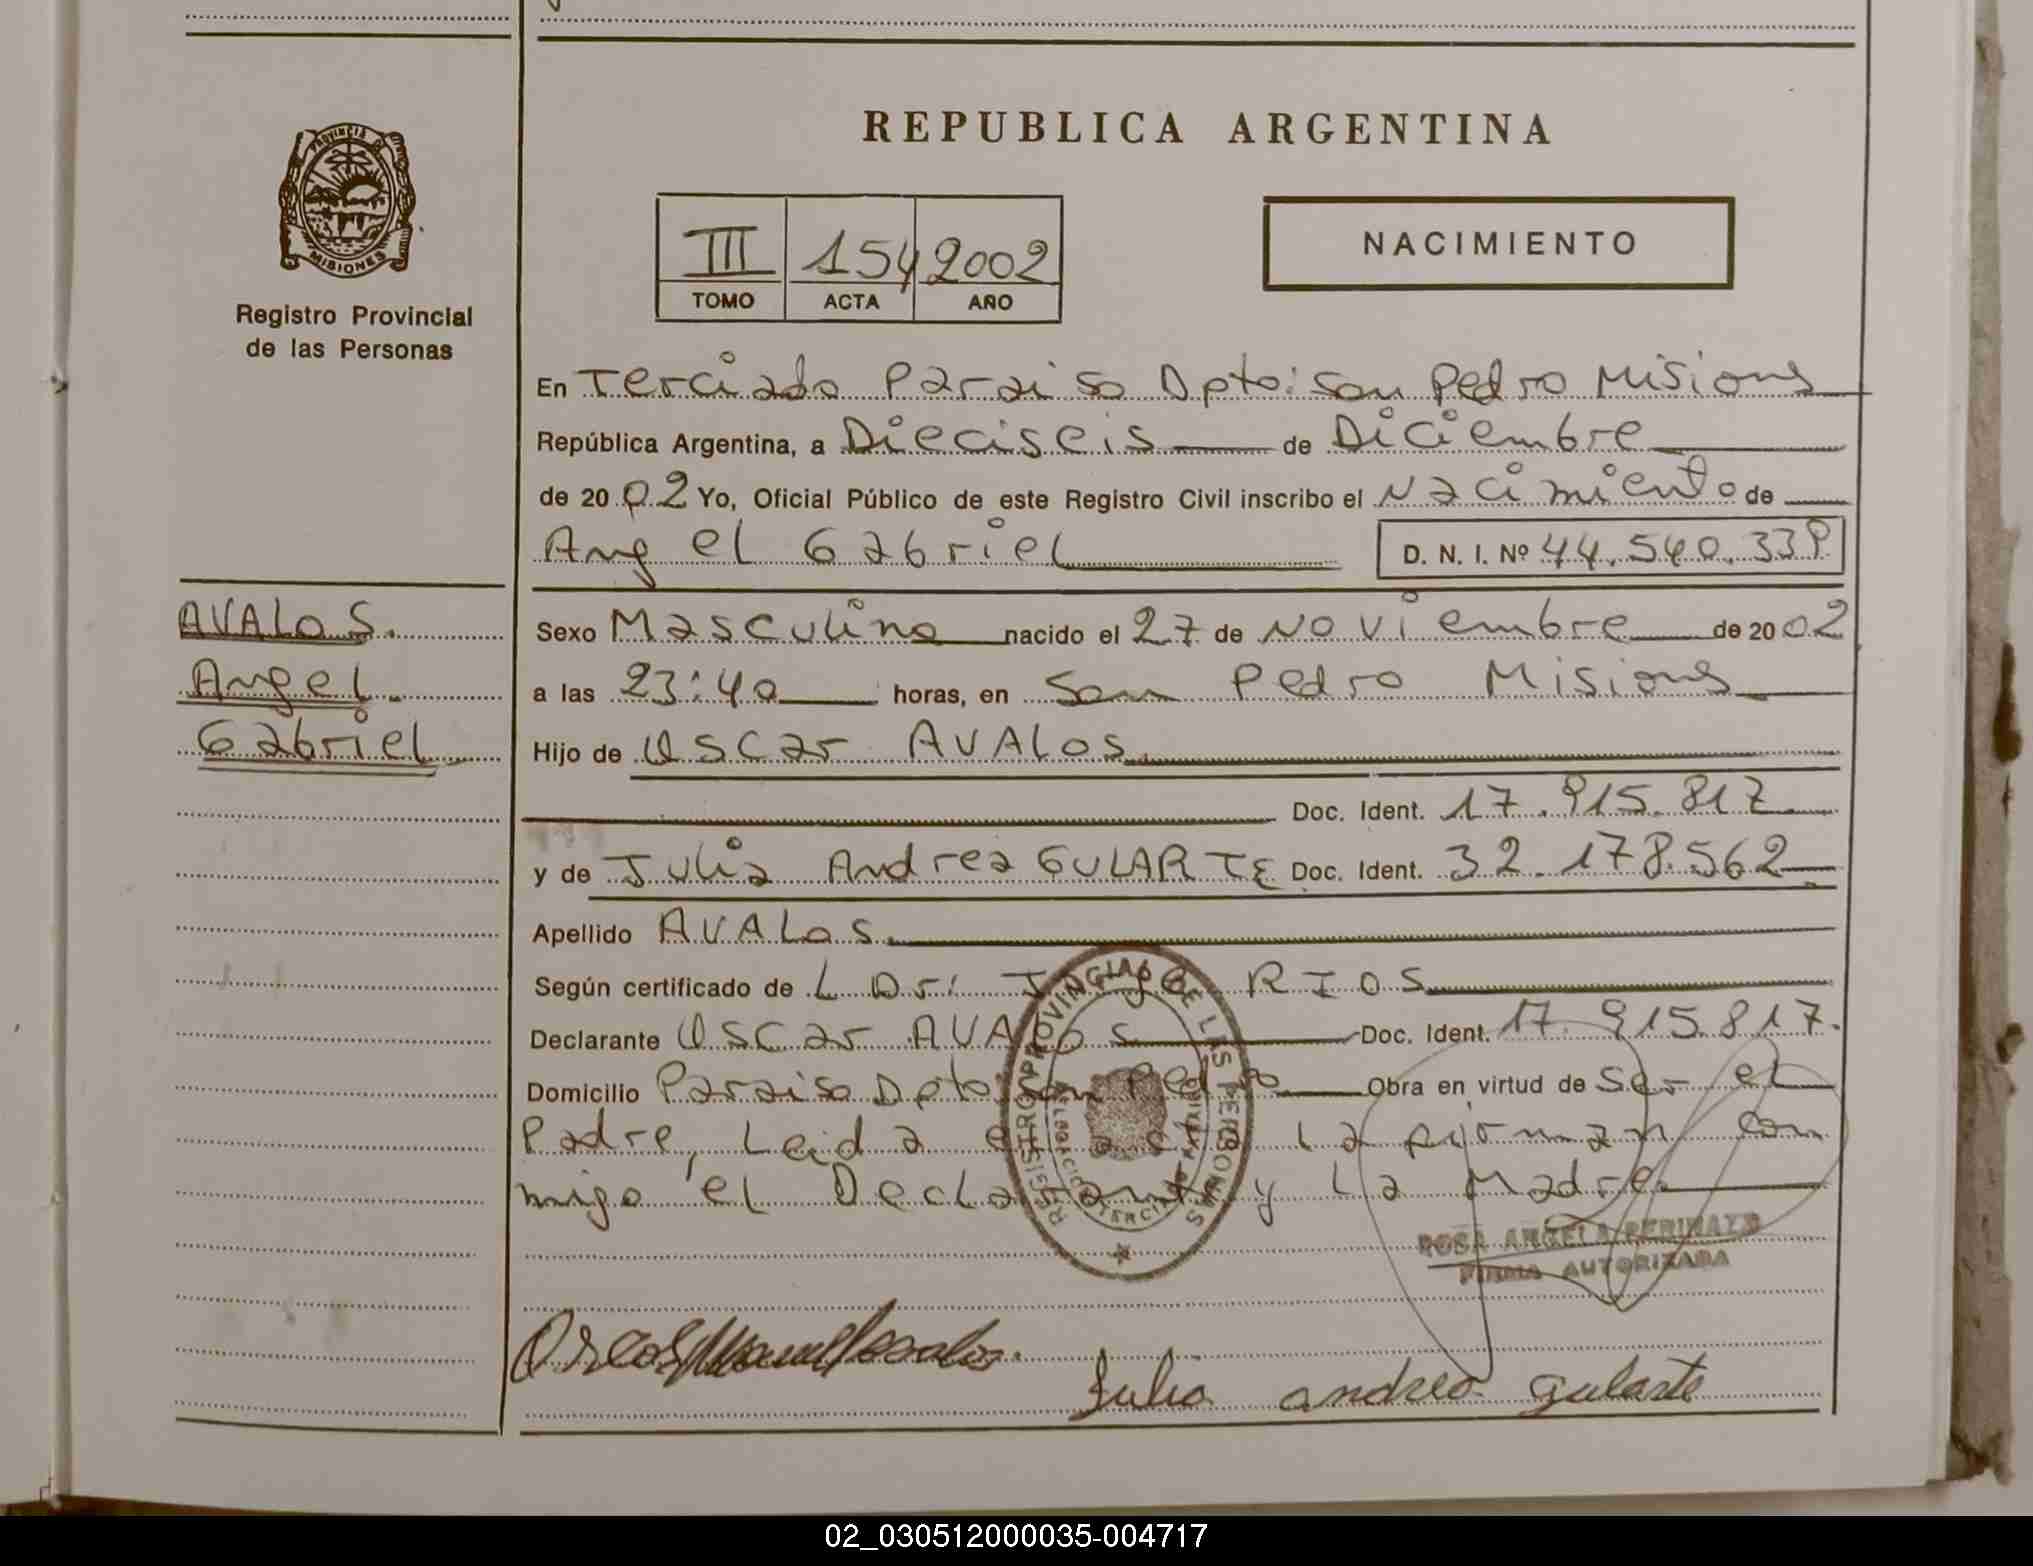 REPUBLICA ARGENTINA
PROVINCIA DE
MISIONES
Registro Provincial
de las Personas
III 154 2002
TOMO ACTA AÑO
NACIMIENTO
En Terciado Paraiso Dpto: San Pedro Misiones
República Argentina, a Dieciseis de Diciembre
de 2002 Yo, Oficial Público de este Registro Civil inscribo el Nacimiento de
Angel Gabriel D. N. I. Nº 44.540.339
AVALOS.
Angel
Gabriel
Sexo Masculino nacido el 27 de Noviembre de 2002
a las 23:40 horas, en San Pedro Misiones
Hijo de Oscar AVALOS
Doc. Ident. 17.915.817
y de Julia Andrea GULARTE Doc. Ident. 32.178.562
Apellido AVALOS
Según certificado de RIOS
Declarante Oscar AVALOS Doc. Ident. 17.915.817.
Domicilio Paraiso Dpto San Pedro Obra en virtud de Ser el
Padre, Leida el acta La firman con
migo el Declarante y La Madre.
REGISTRO PROVINCIAL DE LAS PERSONAS
ROSA ANGELA PERINAZO
FIRMA AUTORIZADA
Julia andrea gularte
02_030512000035-004717